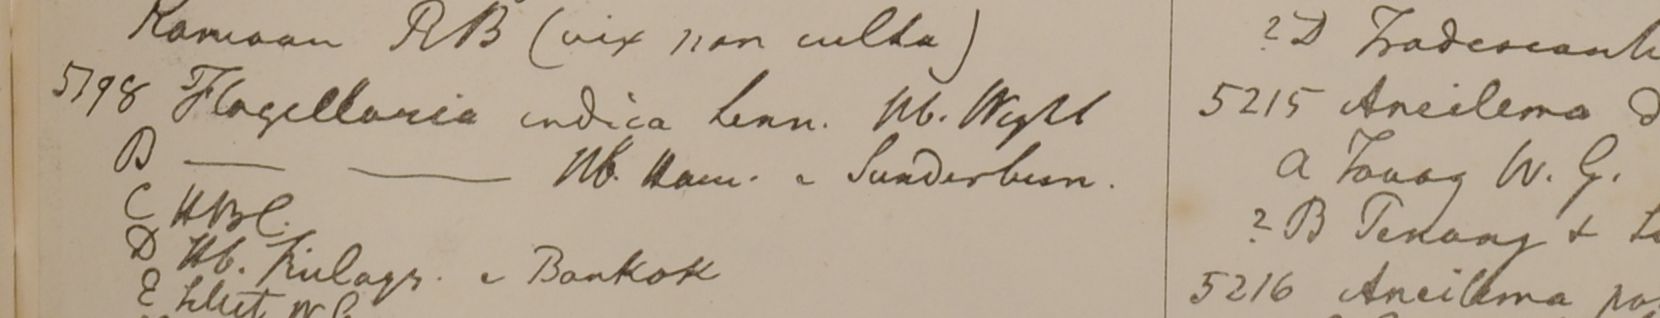 Kamaon RB (vix non culta)
5198 Flagellaria indica Linn. Hb. Wight
B — — Hb. Ham. e Sunderbun.
C HBC.
D Hb. Finlays. e Bankok
E
? D Tradescanti
5215 Aneilema
a Tavoy W. G.
? B Penang &
5216 Aneilema